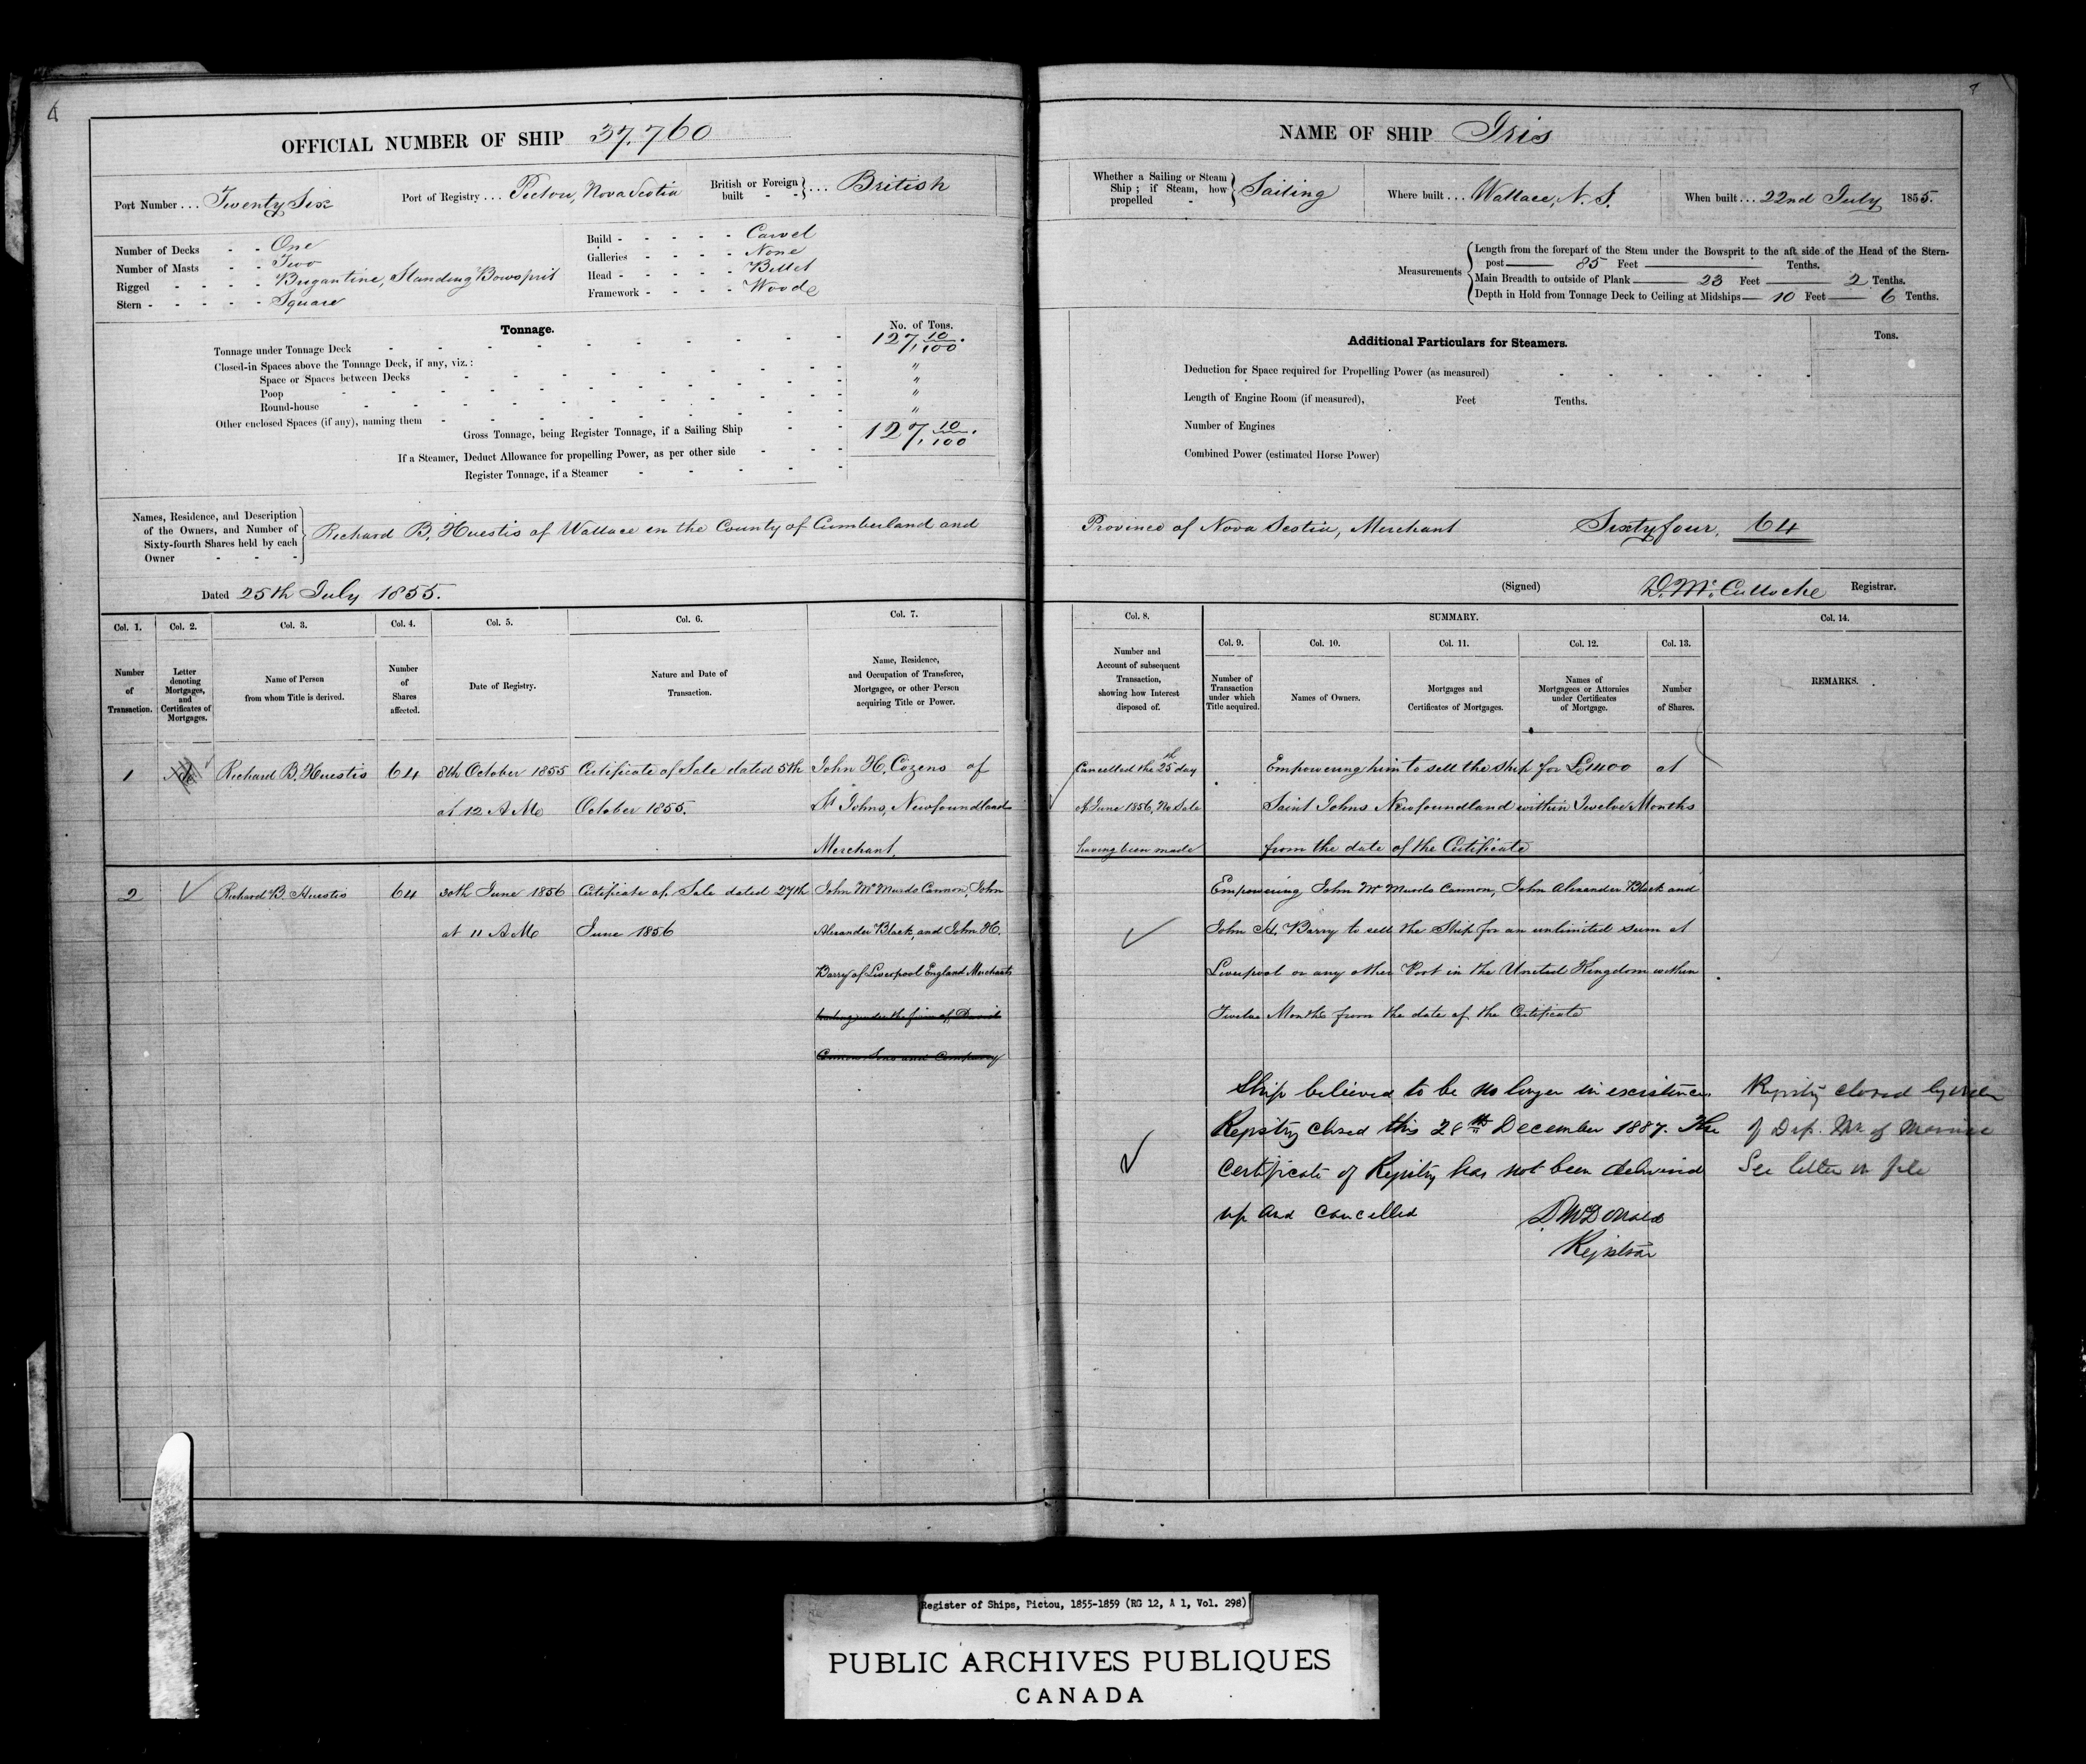 4
OFFICIAL NUMBER OF SHIP 37,760
Port Number ... Twenty Six
Port of Registry ... Pictou, Nova Scotia
British or Foreign built - - } ... British
Number of Decks - - One
Number of Masts - - Two
Rigged - - - - Brigantine, Standing Bowsprit
Stern - - - - - Square
Build - - - - - Carvel
Galleries - - - - None
Head - - - - - Billet
Framework - - - - Wood
Tonnage.
No. of Tons.
Tonnage under Tonnage Deck 127, 10/100.
Closed-in Spaces above the Tonnage Deck, if any, viz.:
Space or Spaces between Decks "
Poop "
Round-house "
Other enclosed Spaces (if any), naming them "
Gross Tonnage, being Register Tonnage, if a Sailing Ship 127, 10/100.
If a Steamer, Deduct Allowance for propelling Power, as per other side
Register Tonnage, if a Steamer
Names, Residence, and Description
of the Owners, and Number of
Sixty-fourth Shares held by each
Owner - - -
Richard B. Huestis of Wallace in the County of Cumberland and
Dated 25th July 1855.
Col. 1.
Number
of
Transaction.
Col. 2.
Letter
denoting
Mortgages,
and
Certificates of
Mortgages.
Col. 3.
Name of Person
from whom Title is derived.
Col. 4.
Number
of
Shares
affected.
Col. 5.
Date of Registry.
Col. 6.
Nature and Date of
Transaction.
Col. 7.
Name, Residence,
and Occupation of Transferee,
Mortgagee, or other Person
acquiring Title or Power.
1 Richard B. Huestis 64 8th October 1855 Certificate of Sale dated 5th John H. Cozens of
at 12 A Mo October 1855. St Johns, Newfoundland
Merchant.
2 Richard B. Huestis 64 30th June 1856 Certificate of Sale dated 27th John McMurdo Cannon, John
at 11 A Mo June 1856 Alexander Black, and John H.
Barry of Liverpool England Merchants
trading under the firm of David
Cannon Sons and Company
7
NAME OF SHIP Iris
Whether a Sailing or Steam
Ship; if Steam, how
propelled -
Sailing
Where built ... Wallace, N. S.
When built ... 22nd July 1855.
Measurements
Length from the forepart of the Stem under the Bowsprit to the aft side of the Head of the Stern-
post 85 Feet Tenths.
Main Breadth to outside of Plank 23 Feet 2 Tenths.
Depth in Hold from Tonnage Deck to Ceiling at Midships 10 Feet 6 Tenths.
Additional Particulars for Steamers.
Tons.
Deduction for Space required for Propelling Power (as measured)
Length of Engine Room (if measured), Feet Tenths.
Number of Engines
Combined Power (estimated Horse Power)
Province of Nova Scotia, Merchant Sixty four, 64
(Signed) D. McCulloche Registrar.
Col. 8.
Number and
Account of subsequent
Transaction,
showing how Interest
disposed of.
SUMMARY.
Col. 9.
Number of
Transaction
under which
Title acquired.
Col. 10.
Names of Owners.
Col. 11.
Mortgages and
Certificates of Mortgages.
Col. 12.
Names of
Mortgagees or Attornies
under Certificates
of Mortgage.
Col. 13.
Number
of Shares.
Col. 14.
REMARKS.
Cancelled the 25th day Empowering him to sell the ship for £1400 at
of June 1856, No Sale Saint Johns Newfoundland within Twelve Months
having been made from the date of the Certificate
Empowering John McMurdo Cannon, John Alexander Black and
John H. Barry to sell the Ship for an unlimited sum at
Liverpool or any other Port in the United Kingdom within
Twelve Months from the date of the Certificate
Ship believed to be no longer in existence Registry closed by order
Registry closed this 28th December 1887. The of Dep. Mr of Marine
Certificate of Registry has not been delivered See letter on file
up and cancelled D. McDonald
Registrar
Register of Ships, Pictou, 1855-1859 (RG 12, A 1, Vol. 298)
PUBLIC ARCHIVES PUBLIQUES
CANADA